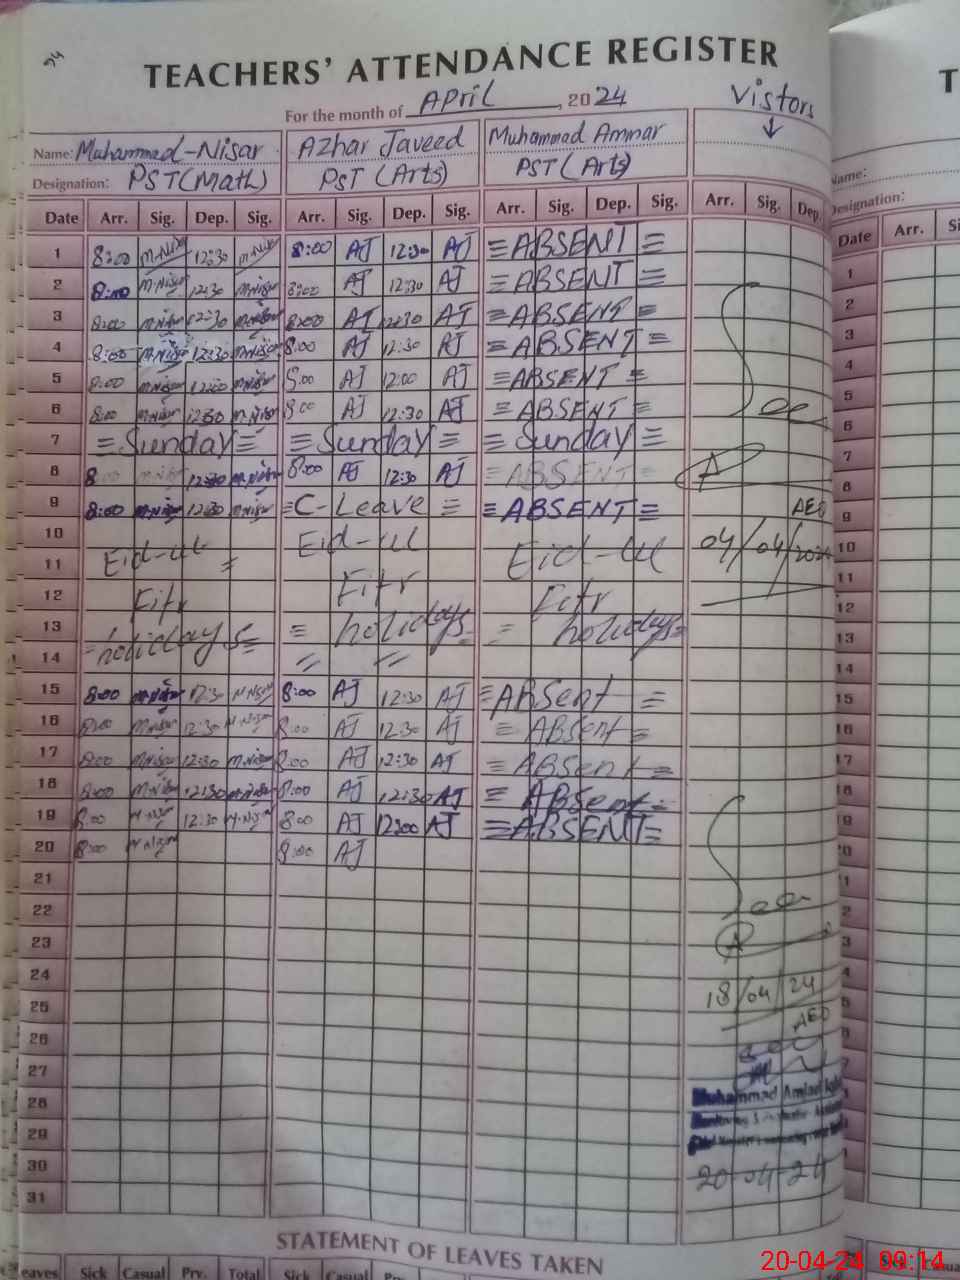 24
TEACHERS' ATTENDANCE REGISTER
For the month of April, 2024
Vistors
Name: Muhammad-Nisar Azhar Javeed Muhammad Ammar
Designation: PST(Math) PST (Arts) PST (Arts)
Date Arr. Sig. Dep. Sig. Arr. Sig. Dep. Sig. Arr. Sig. Dep. Sig. Arr. Sig. Dep.
1 8:00 M-Nisar 12:30 M-Nisar 8:00 AJ 12:30 AJ =ABSENT=
2 8:00 M-Nisar 12:30 M-Nisar 8:00 AJ 12:30 AJ =ABSENT=
3 8:00 M-Nisar 12:30 M-Nisar 8:00 AJ 12:30 AJ =ABSENT=
4 8:00 M-Nisar 12:30 M-Nisar 8:00 AJ 12:30 AJ =ABSENT=
5 8:00 M-Nisar 12:00 M-Nisar 8:00 AJ 12:00 AJ =ABSENT=
6 8:00 M-Nisar 12:30 M-Nisar 8:00 AJ 12:30 AJ =ABSENT= Seen
7 =Sunday= =Sunday= =Sunday=
8 8:00 M-Nisar 12:30 M-Nisar 8:00 AJ 12:30 AJ =ABSENT=
9 8:00 M-Nisar 12:30 M-Nisar =C-Leave= =ABSENT= AEO
10 Eid-ul Eid-ul Eid-ul 04/04/2024
11
12 Fitr Fitr Fitr
13 holidays= = holidays= = holidays=
14
15 8:00 M-Nisar 12:30 M-Nisar 8:00 AJ 12:30 AJ =ABSent=
16 8:00 M-Nisar 12:30 M-Nisar 8:00 AJ 12:30 AJ =ABSent=
17 8:00 M-Nisar 12:30 M-Nisar 8:00 AJ 12:30 AJ =ABSent=
18 8:00 M-Nisar 12:30 M-Nisar 8:00 AJ 12:30 AJ =ABSent=
19 8:00 M-Nisar 12:30 M-Nisar 8:00 AJ 12:00 AJ =ABSENT=
20 8:00 M-Nisar 8:00 AJ
21
22 Seen
23
24 18/04/24
25
26 AEO
27
28 Muhammad
29
30 20-04-24
31
STATEMENT OF LEAVES TAKEN
Leaves Sick Casual Prv. Total Sick Casual
T
Name:
Designation:
Date Arr.
1
2
3
4
5
6
7
8
9
10
11
12
13
14
15
16
17
18
19
20-04-24 09:14